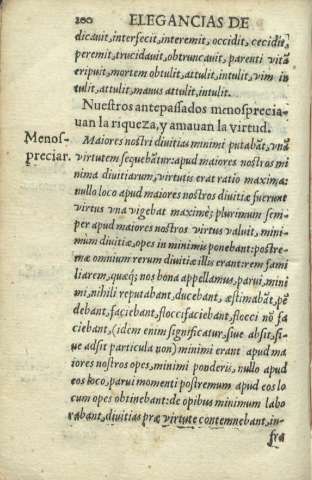 200 ELEGANCIAS DE
dicauit, interfecit, interemit, occidit, cecidit,
peremit, trucidauit, obtruncauit, parenti vitã
eripuit, mortem obtulit, attulit, intulit, vim in
tulit, attulit, manus attulit, intulit.
Nuestros antepassados menosprecia-
uan la riqueza, y amauan la virtud.
Menos-
preciar.
Maiores nostri diuitias minimi putabãt, vnã
virtutem sequebãtur: apud maiores nostros mi
nima diuitiarum, virtutis erat ratio maxima:
nullo loco apud maiores nostros diuitiæ fuerunt
virtus vna vigebat maximè; plurimum sem-
per apud maiores nostros virtus valuit, mini-
mum diuitiæ, opes in minimis ponebant: postre-
ma omnium rerum diuitiæ illis erant: rem fami
liarem, quæq; nos bona appellamus, parui, mini
mi, nihili reputabant, ducebant, æstimabãt, pẽ
debant, faciebant, floccifaciebant, flocci nõ fa
ciebant, (idem enim significatur, siue absit, si-
ue adsit particula non) minimi erant apud ma
iores nostros opes, minimi ponderis, nullo apud
eos loco, parui momenti postremum apud eos lo
cum opes obtinebant: de opibus minimum labo
rabant, diuitias præ virtute contemnebant, in-
fra